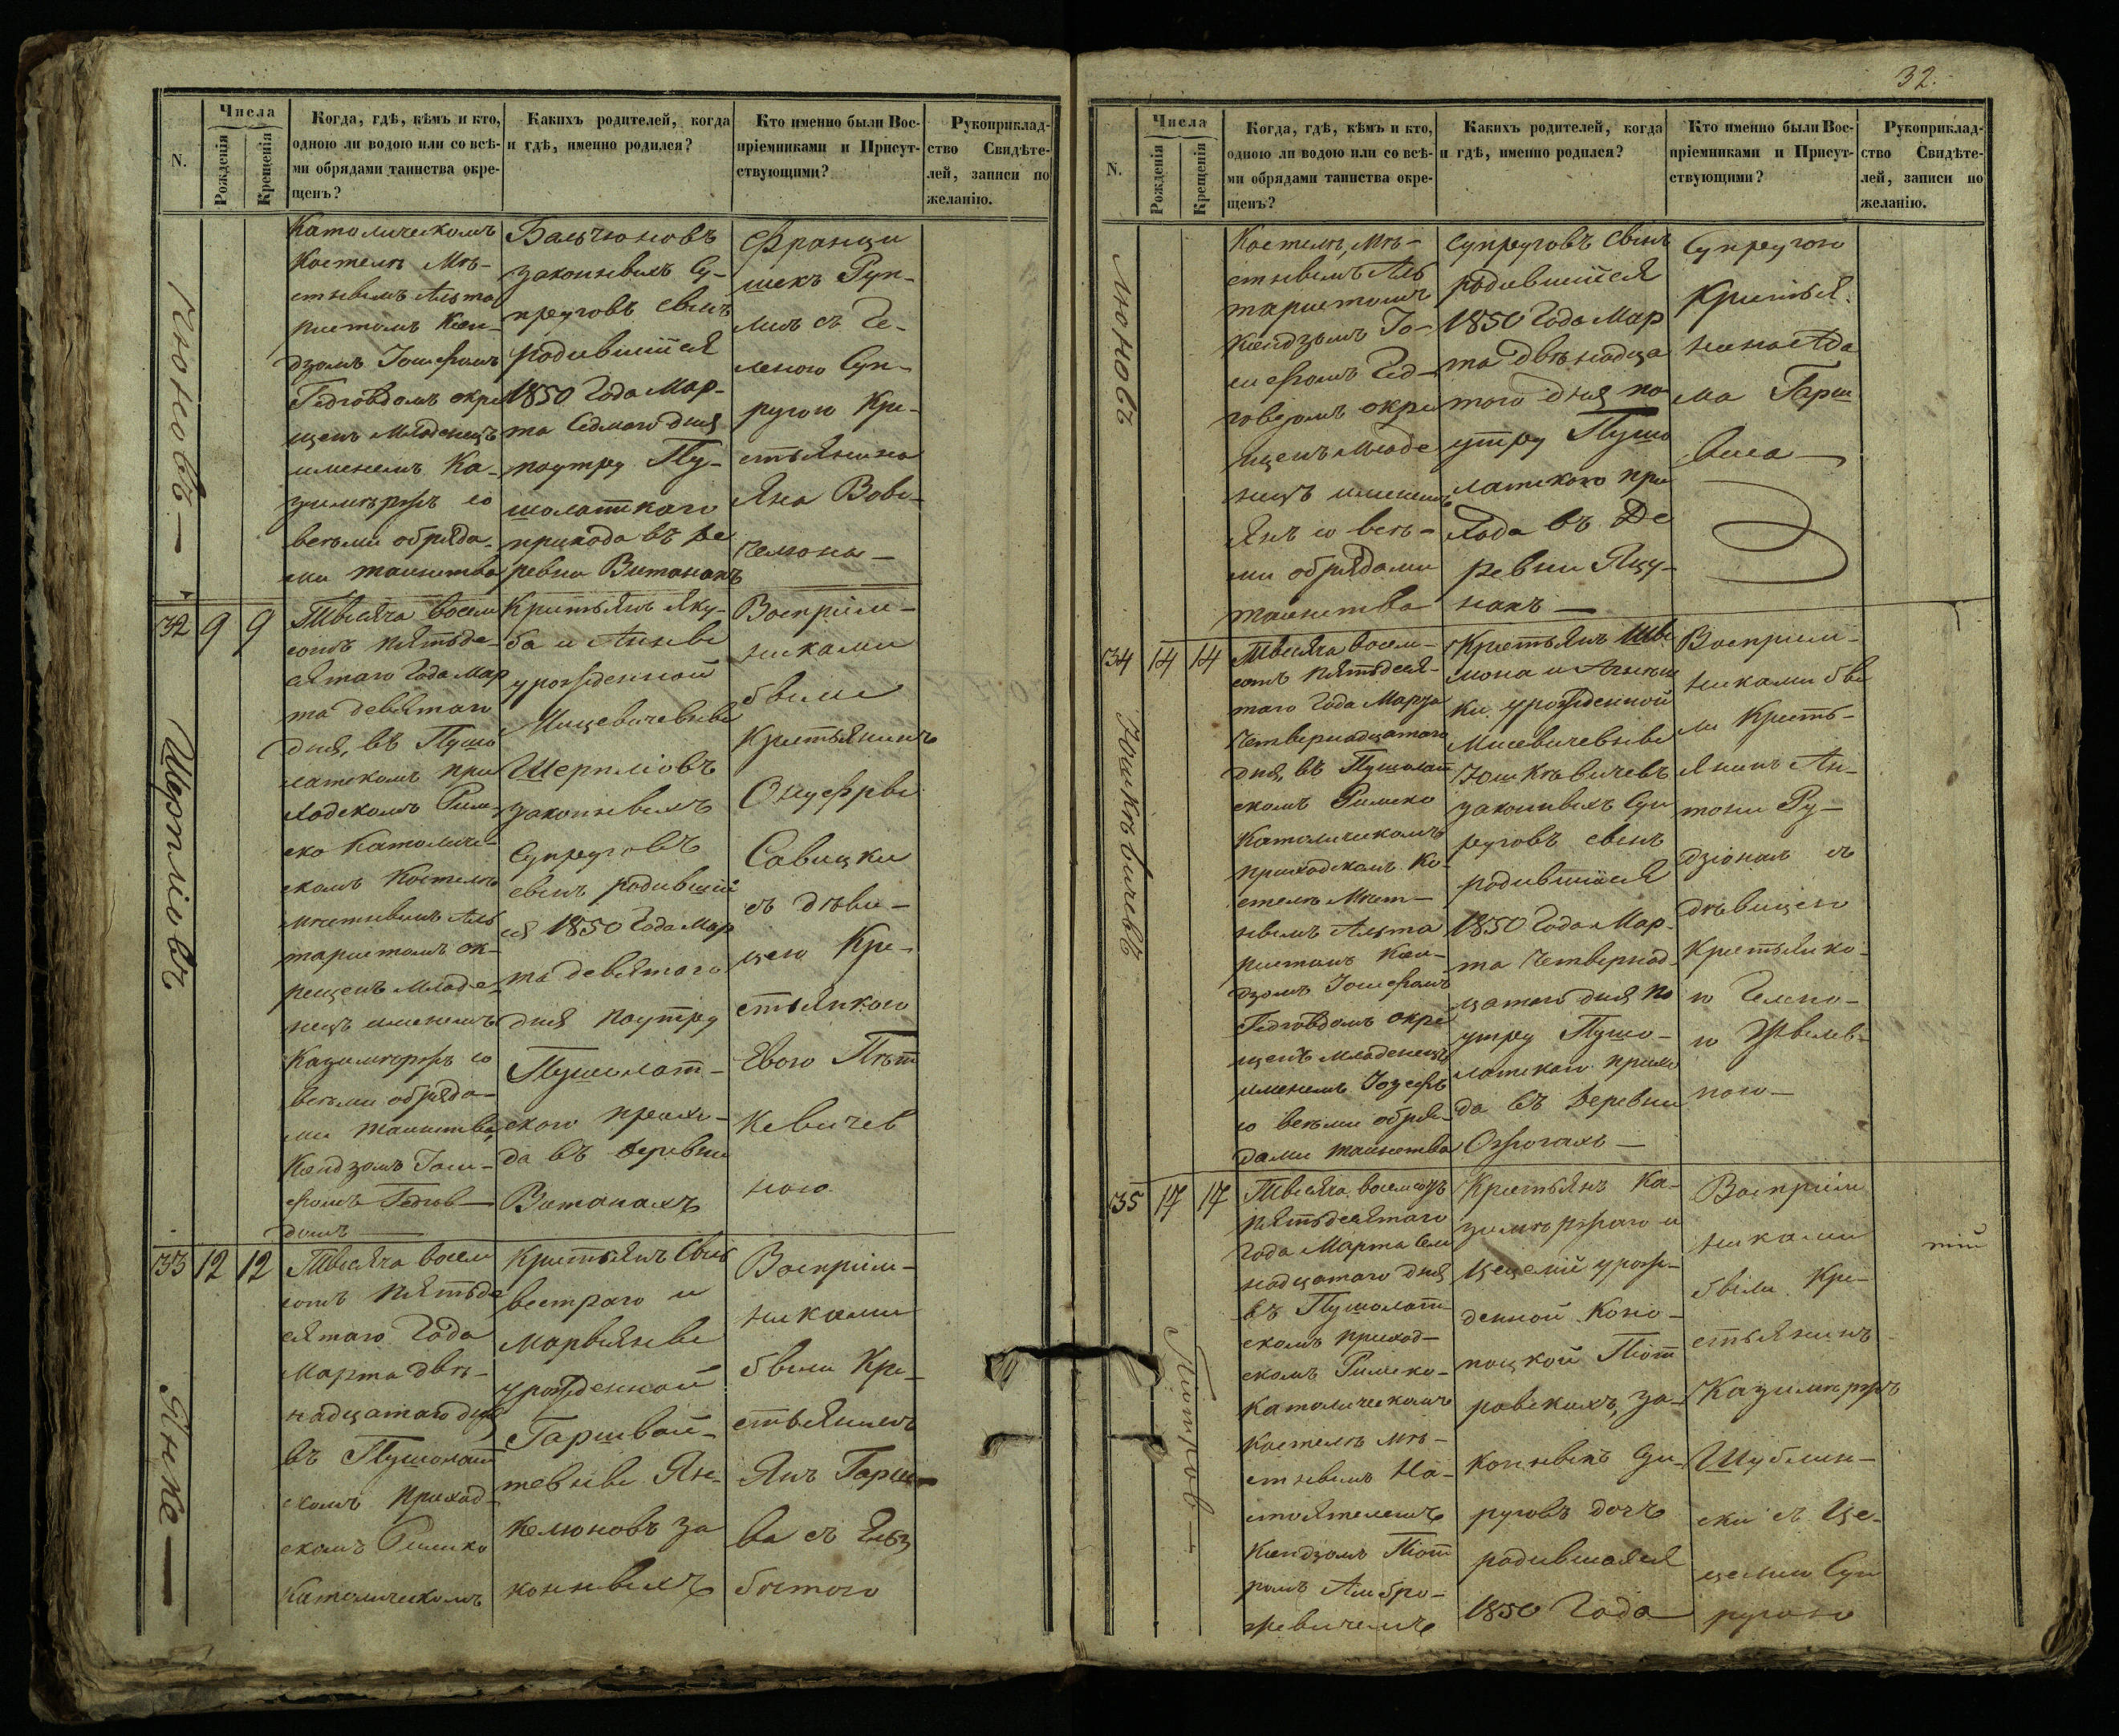 N.
Числа
Рожденія
Крещенія
Когда, гдѣ, кѣмъ и кто,
одною ли водою или со всѣ-
ми обрядами таинства окре-
щенъ?
Какихъ родителей, когда
и гдѣ, именно родился?
Кто именно были Вос-
пріемниками и Присут-
ствующими?
Рукоприклад-
ство Свидѣте-
лей, записи по
желанію.
Католическомъ
Костелѣ Мѣ-
стнымъ Альта
ристомъ Ксен-
дзомъ Іосифомъ
Гедговдомъ окре
щенъ младенецъ
именемъ Ка-
зимѣржъ со
всѣми обряда-
ми таинства
законныхъ Су-
пруговъ сынъ
родившійся
1850 Года Мар-
та Седмого дня
поутру Пу-
шолатскаго
прихода въ де
ревни Витанахъ
Франци
шекъ Рул-
супругою Кре-
стьянина
Яна
32
9
9
Шерпліовъ
Тысяча восем
сотъ пятьде-
сятаго Года Мар
та девятаго
дня, въ Пушо
латскомъ при
ходскомъ Рим-
ско Католиче-
скомъ Костелѣ
мѣстнымъ Аль
таристомъ ок-
рещенъ младе-
нецъ именемъ
Казимѣржъ со
всѣми обряда-
ми таинства,
Ксендзомъ Іоси-
фомъ Гедгов-
домъ
Крестьянъ Яку-
ба и Анны
урожденной
Мицевичевны
Шерпліовъ
законныхъ
Супруговъ
сынъ родившій
ся 1850 Года Мар
та девятаго
дня поутру
Пушолат-
скаго прихо-
да въ деревни
Витанахъ
Воспріем-
никами
были
Крестьянинъ
Онуфры
Савицки
съ дѣви-
цею Кре-
стьянкою
Евою Пѣт
кевичев
ною
33
12
12
Янке
Тысяча восем
сотъ пятьде
сятаго Года
Марта двѣ-
надцатаго дня
въ Пушолат
скомъ приход-
скомъ Римско
Католическомъ
Крестьянъ Силь
вестраго и
Марьянны
урожденной
Гаршвай-
тевны Ян-
келюновъ за
конныхъ
Воспріем-
никами
были Кре-
стьянинъ
Янъ Гарш-
ва съ Ельз
бѣтою
32.
N.
Числа
Рожденія
Крещенія
Когда, гдѣ, кѣмъ и кто,
одною ли водою или со всѣ-
ми обрядами таинства окре-
щенъ?
Какихъ родителей, когда
и гдѣ, именно родился?
Кто именно были Вос-
пріемниками и Присут-
ствующими?
Рукоприклад-
ство Свидѣте-
лей, записи по
желанію.
люновъ
Костелѣ, мѣ-
стнымъ Аль
таристомъ
Ксендзомъ Іо-
сифомъ Гед-
говдомъ окре
щенъ младе
нецъ именемъ
Янъ со всѣ-
ми обрядами
таинства
Супруговъ сынъ
родившійся
1850 Года Мар
та двѣнадца
того дня по
утру Пушо
латскаго при
хода въ Де
ревни Яцу-
нахъ
Супругою
Крестья
нина Ада
ма Гарш
вы
34
14
14
Юшкѣвичевъ
Тысяча восем-
сотъ пятьдеся-
таго Года Марта
Четвернадцатаго
дня, въ Пушолат
скомъ Римско
Католическомъ
приходскомъ Ко-
стелѣ Мѣст-
нымъ Альта
ристомъ Ксен-
дзомъ Іосифомъ
Гедговдомъ окре
щенъ младенецъ
именемъ Іозефъ
со всѣми обря-
дами таинства
Крестьянъ Шы
мона и Агнѣш
ки урожденной
Мисевичевны
Юшкѣвичевъ
законныхъ Суп
руговъ сынъ
родившійся
1850 Года Мар-
та Четвернад-
цатого дня по
утру Пушо-
латскаго прихо
да въ Деревни
Ожогахъ
Воспріем-
никами бы
ли Кресть-
янинъ Ан-
тони Ру-
дзіонисъ съ
дѣвицею
Крестьянко-
ю
35
17
17
Піотров
Тысяча восемсотъ
пятьдесятаго
Года Марта Сем
надцатаго дня
въ Пушолат
скомъ приход-
скомъ Римско-
Католическомъ
Костелѣ мѣ-
стнымъ На-
стоятелемъ
Ксендзомъ Піот
ромъ Амбро-
жевичемъ
Крестьянъ Ка-
зимѣржаго и
Цецеліи урож-
денной Коно-
пацкой Піот
ровскихъ, за-
конныхъ Суп-
руговъ дочь
родившаяся
1850 Года
Воспріем
никами
были Кре-
стьянинъ
Казимѣржъ
Шублин-
ски съ Це-
целіи Суп
ругою